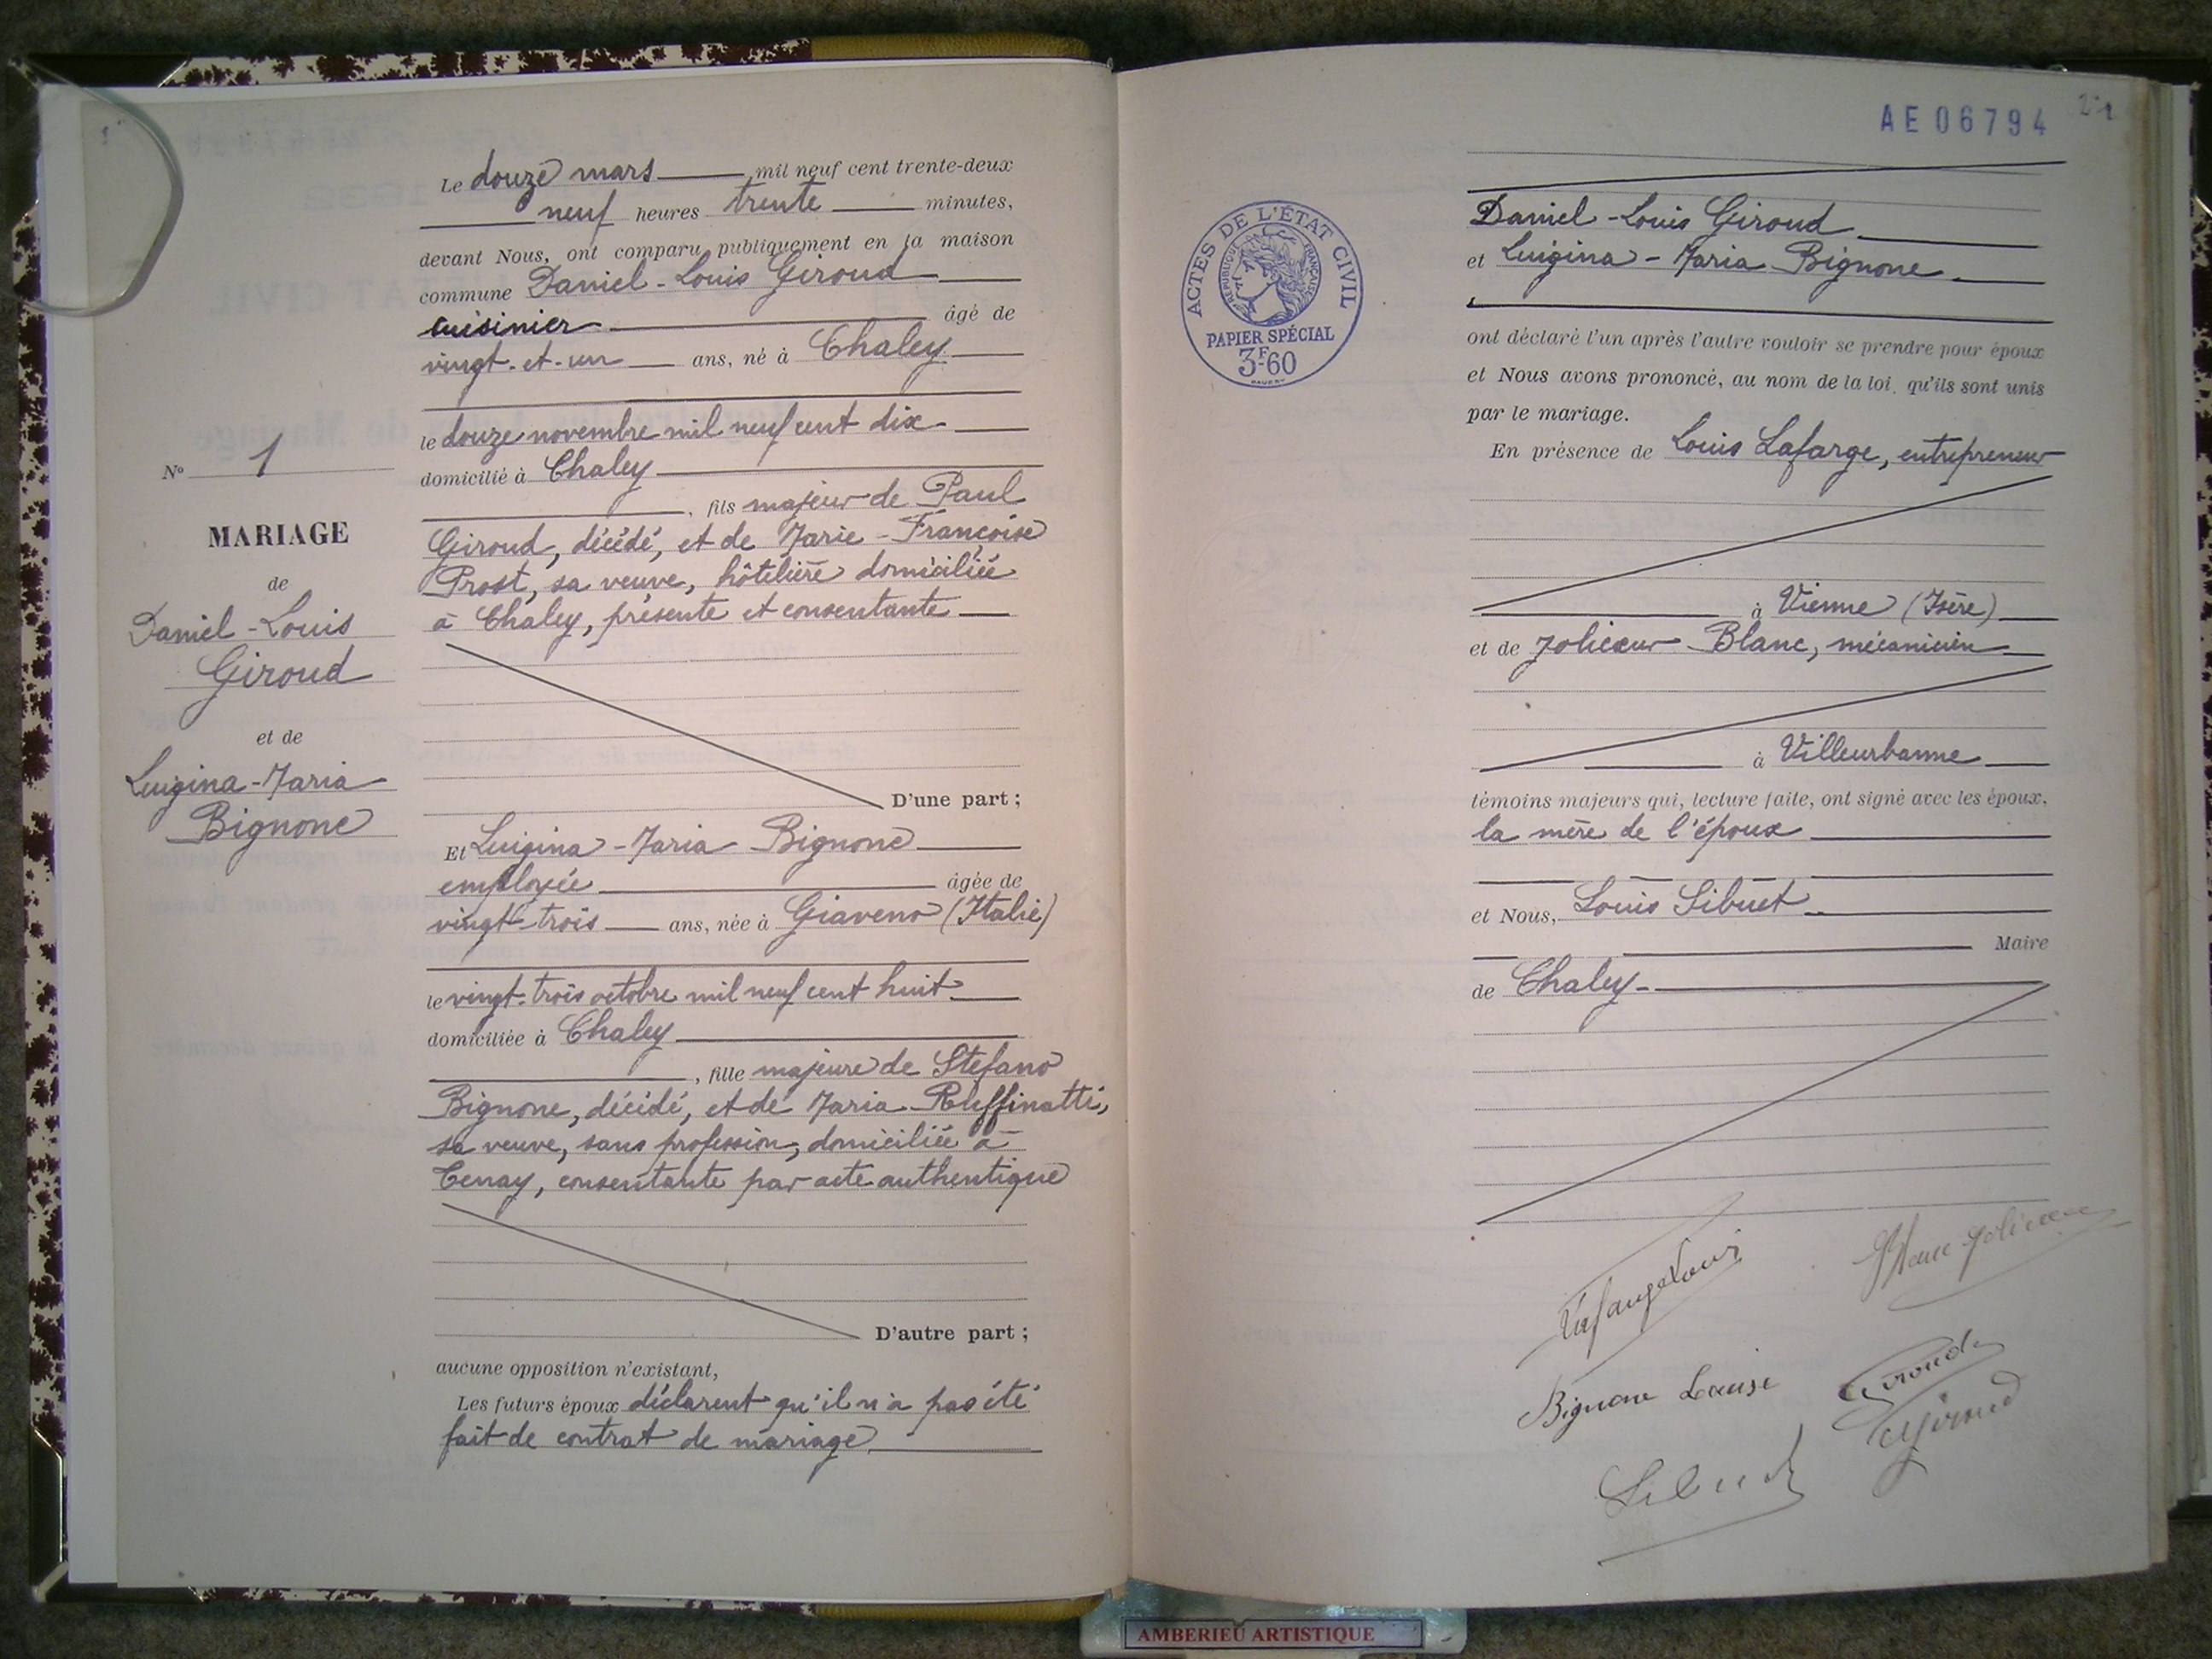 Le douze mars mil neuf cent trente-deux
neuf heures trente minutes,
devant Nous, ont comparu publiquement en la maison
commune Daniel-Louis Giroud
cuisinier âgé de
vingt-et-un ans, né à Chaley
le douze novembre mil neuf cent dix
domicilié à Chaley
, fils majeur de Paul
Giroud, décédé, et de Marie-Françoise
Prost, sa veuve, hôtelière domiciliée
à Chaley, présente et consentante
D'une part ;
Et Luigina-Maria Bignone
employée âgée de
vingt-trois ans, née à Giaveno (Italie)
le vingt-trois octobre mil neuf cent huit
domiciliée à Chaley
, fille majeure de Stefano
Bignone, décédé, et de Maria Ruffinatti,
sa veuve, sans profession, domiciliée à
Tenay, consentante par acte authentique
D'autre part ;
aucune opposition n'existant,
Les futurs époux déclarent qu'il n'a pas été
fait de contrat de mariage
No 1
MARIAGE
de
Daniel-Louis
Giroud
et de
Luigina-Maria
Bignone
AE 06794
ACTES DE L'ÉTAT CIVIL
RÉPUBLIQUE FRANÇAISE
PAPIER SPÉCIAL
3F60
Daniel-Louis Giroud
et Luigina-Maria Bignone
ont déclaré l'un après l'autre vouloir se prendre pour époux
et Nous avons prononcé, au nom de la loi, qu'ils sont unis
par le mariage.
En présence de Louis Lafarge, entrepreneur
à Vienne (Isère)
et de Jolicœur Blanc, mécanicien
à Villeurbanne
témoins majeurs qui, lecture faite, ont signé avec les époux,
la mère de l'époux
et Nous, Louis Sibuet
Maire
de Chaley
Lafarge Louis
Blanc Jolicœur
Bignone Louise
Giroud
Giroud
Sibuet
AMBERIEU ARTISTIQUE